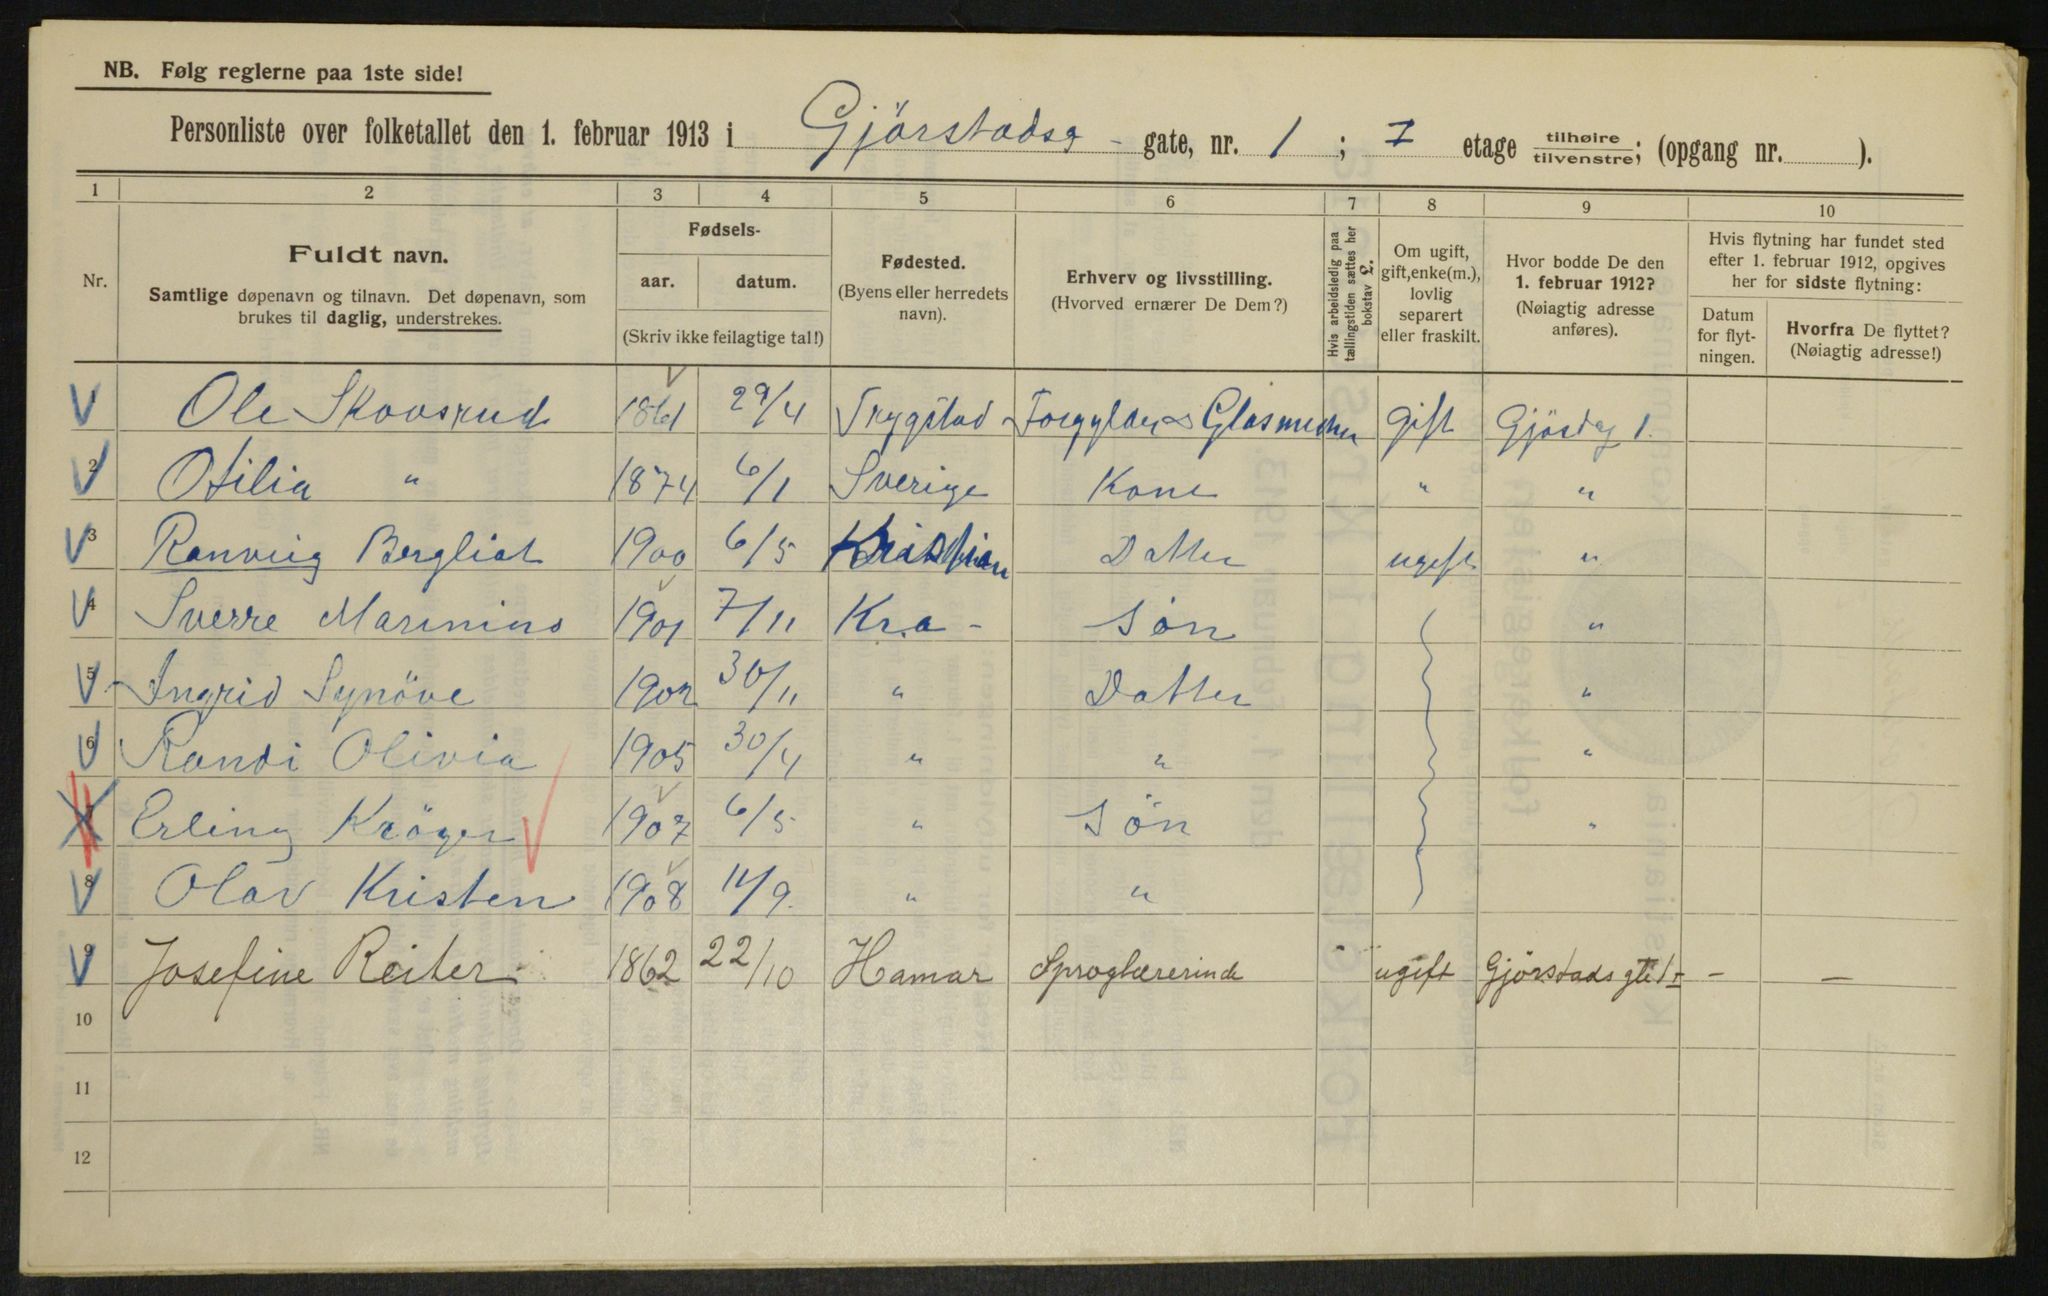 NB. Følg reglerne paa 1ste side!
Personliste over folketallet den 1. februar 1913 i Gjörstadsg - gate, nr. 1 ; I etage tilhøire/tilvenstre; (opgang nr. ).
1 2 3 4 5 6 7 8 9 10
Nr.
Fuldt navn.
Samtlige døpenavn og tilnavn. Det døpenavn, som
brukes til daglig, understrekes.
Fødsels-
aar. datum.
(Skriv ikke feilagtige tal!)
Fødested.
(Byens eller herredets
navn).
Erhverv og livsstilling.
(Hvorved ernærer De Dem?)
Hvis arbeidsledig paa
tællingstiden sættes her
bokstav L.
Om ugift,
gift, enke(m.),
lovlig
separert
eller fraskilt.
Hvor bodde De den
1. februar 1912?
(Nøiagtig adresse
anføres).
Hvis flytning har fundet sted
efter 1. februar 1912, opgives
her for sidste flytning:
Datum
for flyt-
ningen.
Hvorfra De flyttet?
(Nøiagtig adresse!)
Ole Skovsrud 1861 29/4 Trygstad Forgylder & Glasmester gift Gjörstdg 1.
2 Otilia " 1874 6/1 Sverige Kone " "
3 Ranveig Bergliot 1900 6/5 Kristian Datter ugift "
4 Sverre Marinius 1901 7/11 Kr.a - Søn "
5 Ingrid Synöve 1902 30/11 " Datter "
6 Randi Olivia 1905 30/4 " " "
7 Erling Kröger 1907 6/5 " Søn "
8 Olav Kristen 1908 11/9. " "
9 Josefine Reiter 1862 22/10 Hamar Sproglærerinde ugift Gjörstads gt - -
10
11
12